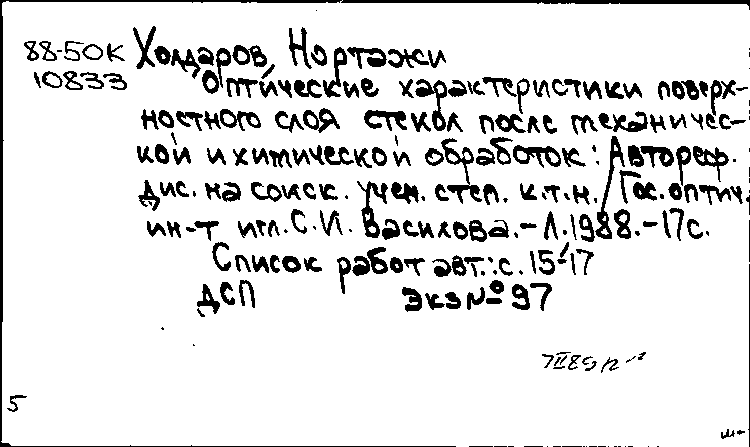 88-50К Холдаров, Нортажи
10833 Оптические характеристики поверх-
ностного слоя стекол после механичес-
кой и химической обработок: Автореф.
дис. на соиск. учен. степ. к.т.н. / Гос. оптич.
ин-т им. С.И. Вавилова. - Л., 1988. - 17с.
Список работ авт.: с. 15-17
ДСП Экз № 97
5